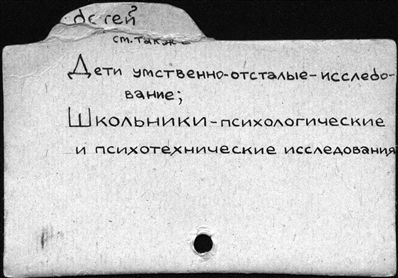 детей
см. также
Дети умственно-отсталые-исследо-
вание;
Школьники-психологические
и психотехнические исследования